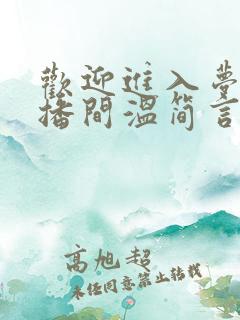 歡迎進入夢
播間溫简言
高旭超
未任同意禁止转载